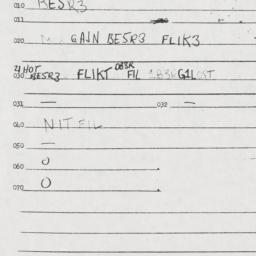 010 BESR3
011
020 GAIN BESR3 FLIK3
21 HOT
030 BESR3 FLIKT OB3R FIL G1L
031 — 032 —
040 NIT FIL
050 —
060 O
070 O